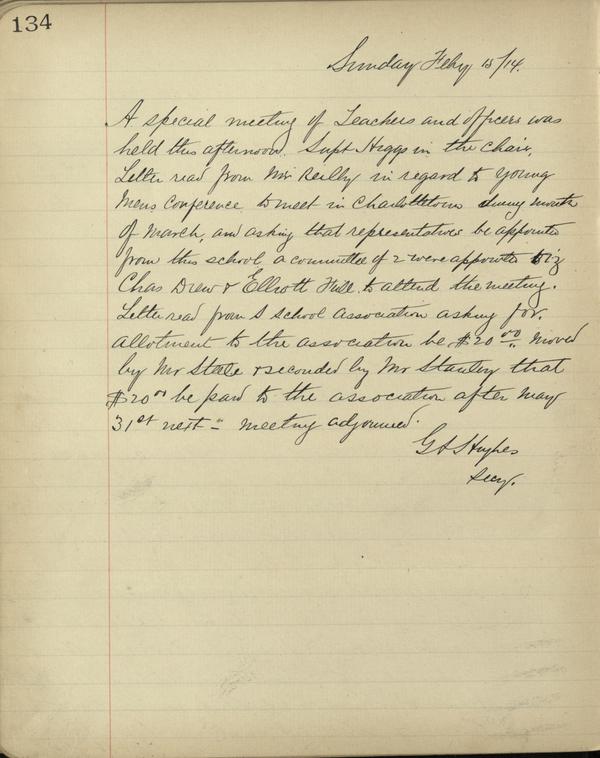 134
Sunday Feby 15/14.
A special meeting of Teachers and officers was
held this afternoon. Supt Higgs in the chair,
Letter read from Mr Reilly in regard to Young
Mens Conference to meet in Charlottetown during month
of March, and asking that representatives be appointed
from this school a committee of 2 were appointed viz
Chas Drew & Elliott Hill to attend the meeting.
Letter read from S School Association asking for
allotment to the association be $20.00 moved
by Mr Steele & seconded by Mr Stanley that
$20.00 be paid to the association after May
31st next - meeting adjourned.
G A S Hughes
Secy.